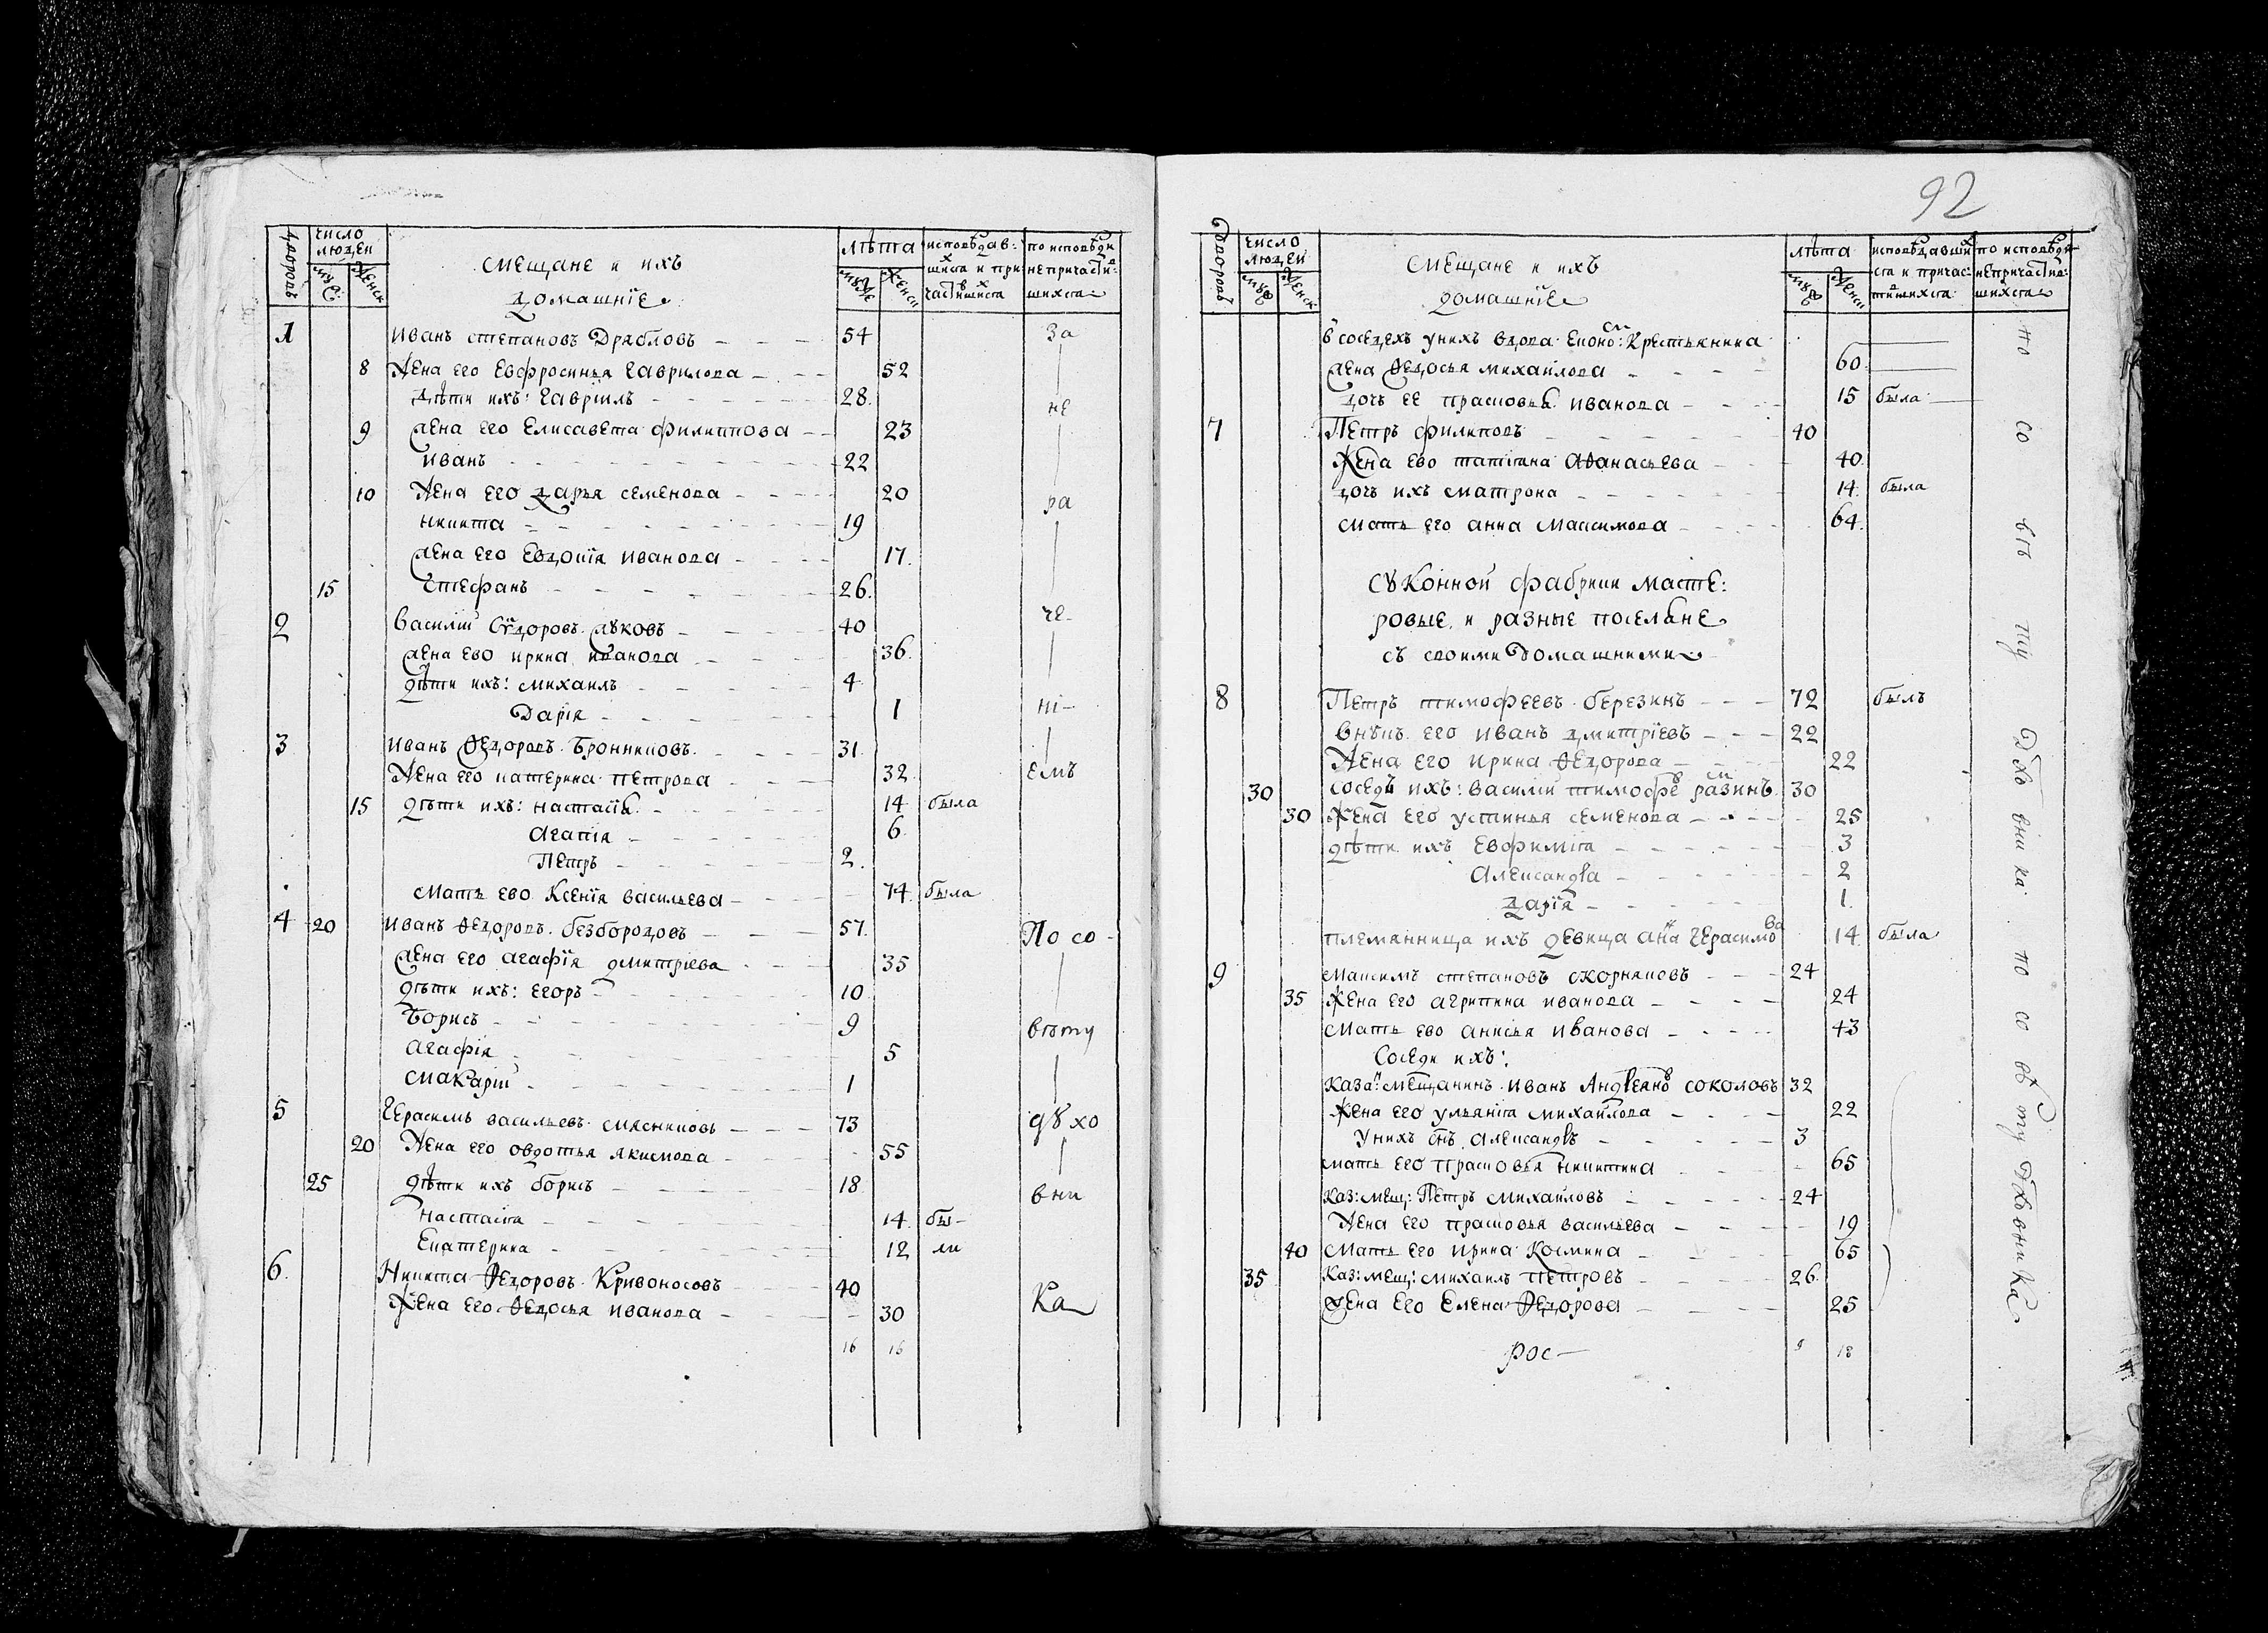 дворовъ
число людей
муж:
женск
мещане и ихъ
домашнїе
лѣта
муж
женск
исповѣдав:
шихся и при
частившихся
по исповѣди
непричасти:
вшихся
1 Иванъ степановъ Дрябловъ 54 за
8 Жена его Евфросинья гаврилова 52
дѣти ихъ: гаврїилъ 28 не
9 жена его Елисавета филиппова 23
Иванъ 22
10 Жена его дарья семенова 20 ра
никита 19
жена его Евдокїя Иванова 17
15 Стефанъ 26
2 Василїй Сїдоровъ 40 че
жена ево ирина иванова 36
дѣти ихъ: михаилъ 4
Дарїя 1 нї
3 Иванъ Ѳедоровъ Бронниковъ 31
Жена его катерина петрова 32 емъ
15 дѣти ихъ: настасїя 14 была
Агапїя 6
Петръ 2
мать ево Ксенїя васильева 74 была
4 20 Иванъ Ѳедоровъ безбородовъ 57 По со
жена его агафїя дмитрїева 35
дѣти ихъ: егоръ 10
Борисъ 9 вѣту
агафїя 5
макарїй 1
5 Герасимъ васильевъ мясниковъ 73 дꙋхо
20 Жена его овдотья якимова 55
25 дѣти ихъ борисъ 18 вни
настасїя 14 бы
Екатерина 12 ли
6 Никита Ѳедоровъ Кривоносовъ 40
Жена его Ѳедосья иванова 30 ка
16 16
92
дворовъ
число людей
муж
женск
мещане и ихъ
домашнїе
лѣта
муж
женск
исповѣдавших
ся и причас:
тившихся
по исповѣди
непричастив:
шихся
в соседехъ унихъ вдова Економ: Крестьянина
жена Ѳедосья михаилова 60
дочь ее прасковья иванова 15 была
7 Петръ филиповъ 40
Жена ево татїана Аѳанасьева 40
дочь ихъ матрона 14 была
мать его анна Максимова 64
сꙋконной фабрики масте:
ровые и разные поселяне
съ своими домашними
8 Петръ тимофеевъ березинъ 72 былъ
внукъ его Иванъ дмитрїевъ 22
Жена его ирина Ѳедорова 22
30 соседъ ихъ: василїй тимофеев разинъ 30
30 Жена его устинья семенова 25
дѣти ихъ Евфимїа 3
Александра 2
дарїя 1
племянница ихъ девица анна герасимова 14 была
9 максимъ степановъ скорняковъ 24
35 Жена его агрипина иванова 24
мать ево анисья Иванова 43
Соседи ихъ:
каза: мещанинъ Иванъ Андреяновъ соколовъ 32
Жена его ульянїа михайлова 22
У нихъ снъ александръ 3
мать его прасковья никитина 65
каз: мещ: Петръ михайловъ 24
Жена его прасковья васильева 19
40 мать его ирина Козмина 65
35 Каз: мещ: михаилъ петровъ 26
жена Его Елена Ѳедорова 25
рос
9 18
по со вѣ ту Дхо вни ка
по со вѣ ту Дховника